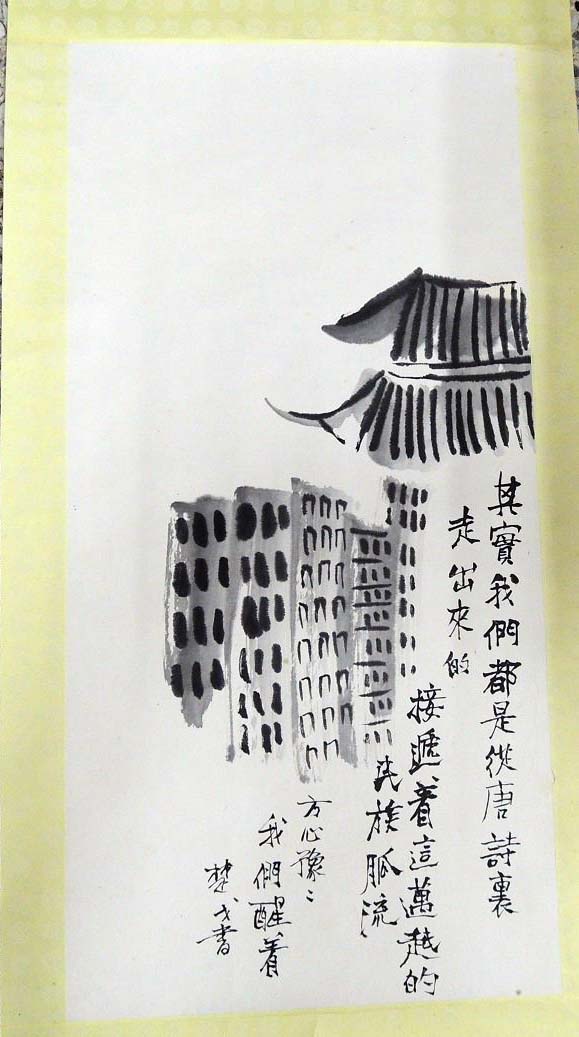 其實我們都是從唐詩裏
走出來的
接遞着這邁越的
民族脈流
方心豫〻
我們醒着
楚戈書